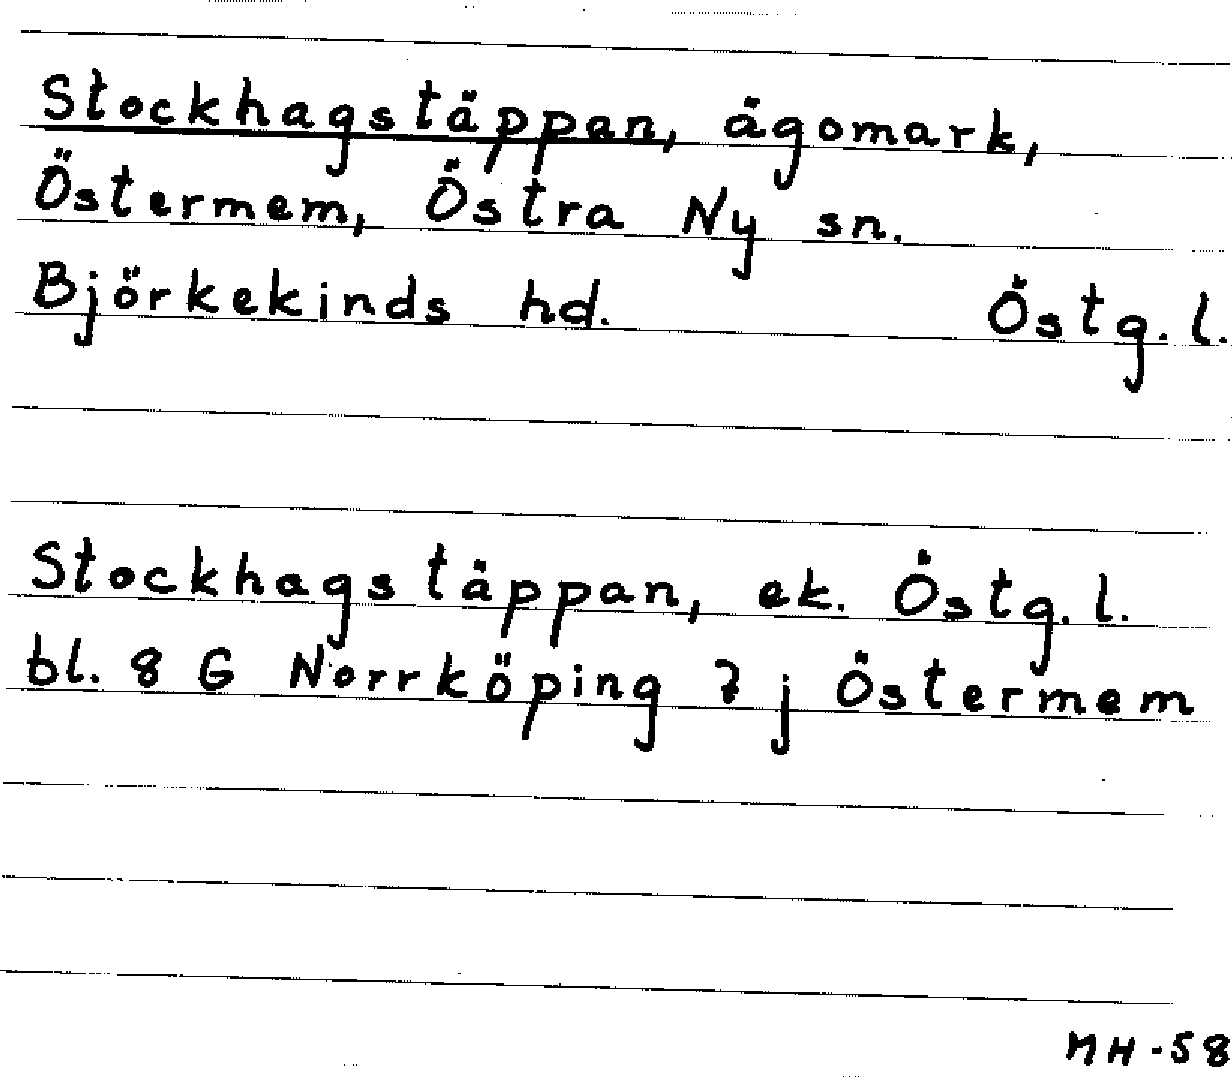 Stockhagstäppan, ägomark,
Östermem, Östra Ny sn.
Björkekinds hd. Östg. l.
Stockhagstäppan, ek. Östg. l.
bl. 8 G Norrköping 7 j Östermem
MH-58